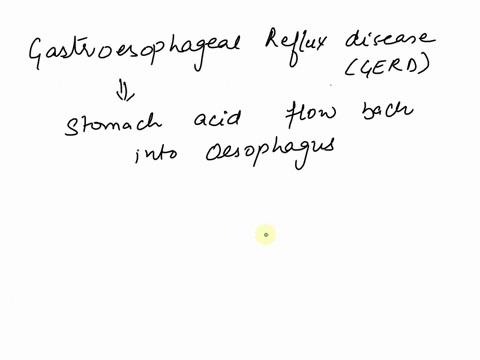 Gastroesophageal Reflux disease
(GERD)
⇓
Stomach acid flow back
into Oesophagus